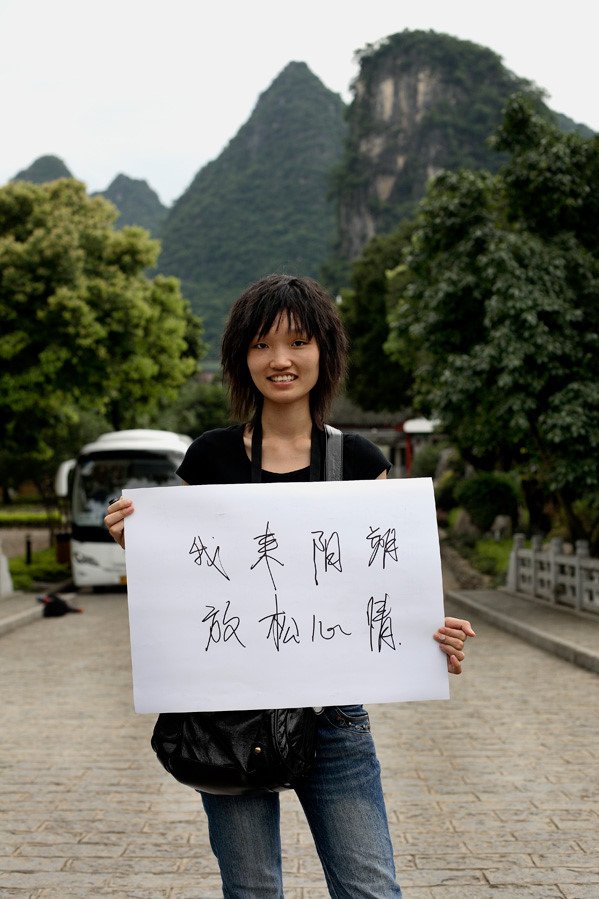 我来阳朔
放松心情.